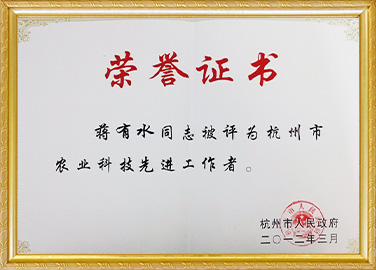 荣誉证书
蒋有水同志被评为杭州市
农业科技先进工作者。
杭州市人民政府
二〇一二年三月